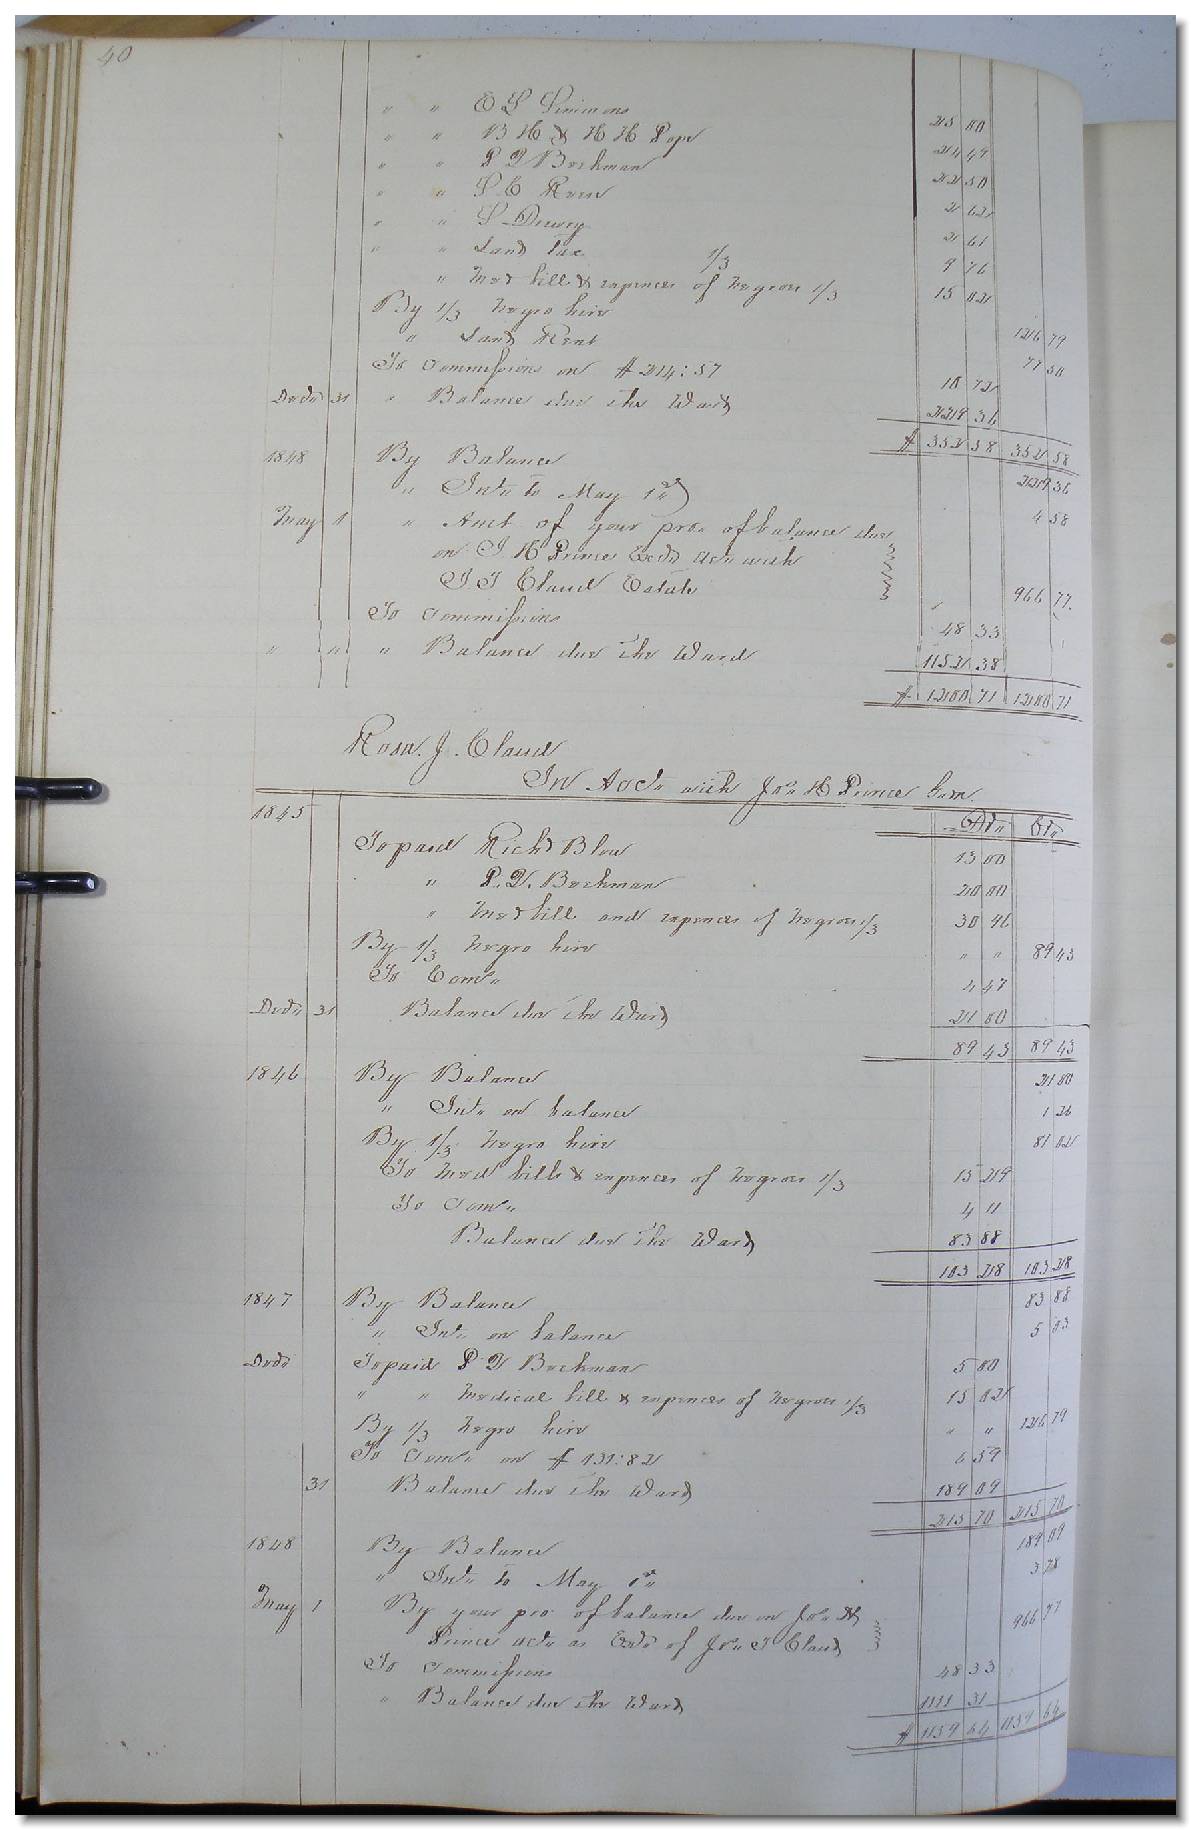 40
" " E L Simmons 25 00
" " B H & H H Pope 24 49
" " P D Beckman 22 50
" " S C 2 62
" " S Drewry 2 61
" " Land Tax 1/3 9 76
" Med bill & expences of negroes 1/3 15 02
By 1/3 negro hire 126 79
" Land Rent 77 50
To Commissions on $ 214:57 10 72
Decr 31 " Balance due the Ward 219 36
$ 352 58 352 58
1848 By Balance 219 36
" Int" to May 1st 4 58
May 1 " Amt of your pro" of balance due
on J H Prince Exd" Act" with
J T Claud Estate 966 77
To Commissions 48 33
" " " Balance due the Ward 1152 38
$ 1200 71 1200 71
Rosa. J. Claud
In Acct" with Jno" H Prince Guar.
1845 Dr" Cr"
To paid Richd Blow 13 00
" P. D. Beckman 20 00
" Med bill and expences of negroes 1/3 30 96
By 1/3 negro hire " " 89 43
To Com" 4 47
Decr 31 Balance due the Ward 21 00
89 43 89 43
1846 By Balance 21 00
" Int" on balance 1 26
By 1/3 negro hire 81 02
To Med bills & expences of negroes 1/3 15 29
To Com" 4 11
Balance due the Ward 83 88
103 28 103 28
1847 By Balance 83 88
" Int" on balance 5 03
Decr To paid P D Beckman 5 00
" " Medical bill & expences of negroes 1/3 15 02
By 1/3 negro hire " " 126 79
To Com" on $ 131:82 6 59
31 Balance due the Ward 189 09
215 70 215 70
1848 By Balance 189 09
" Int" to May 1st 3 78
May 1 By your pro of balance due on Jno" H
Prince act" as Exd" of Jno" T Claud 966 77
To Commissions 48 33
" Balance due the Ward 1111 31
$ 1159 64 1159 64